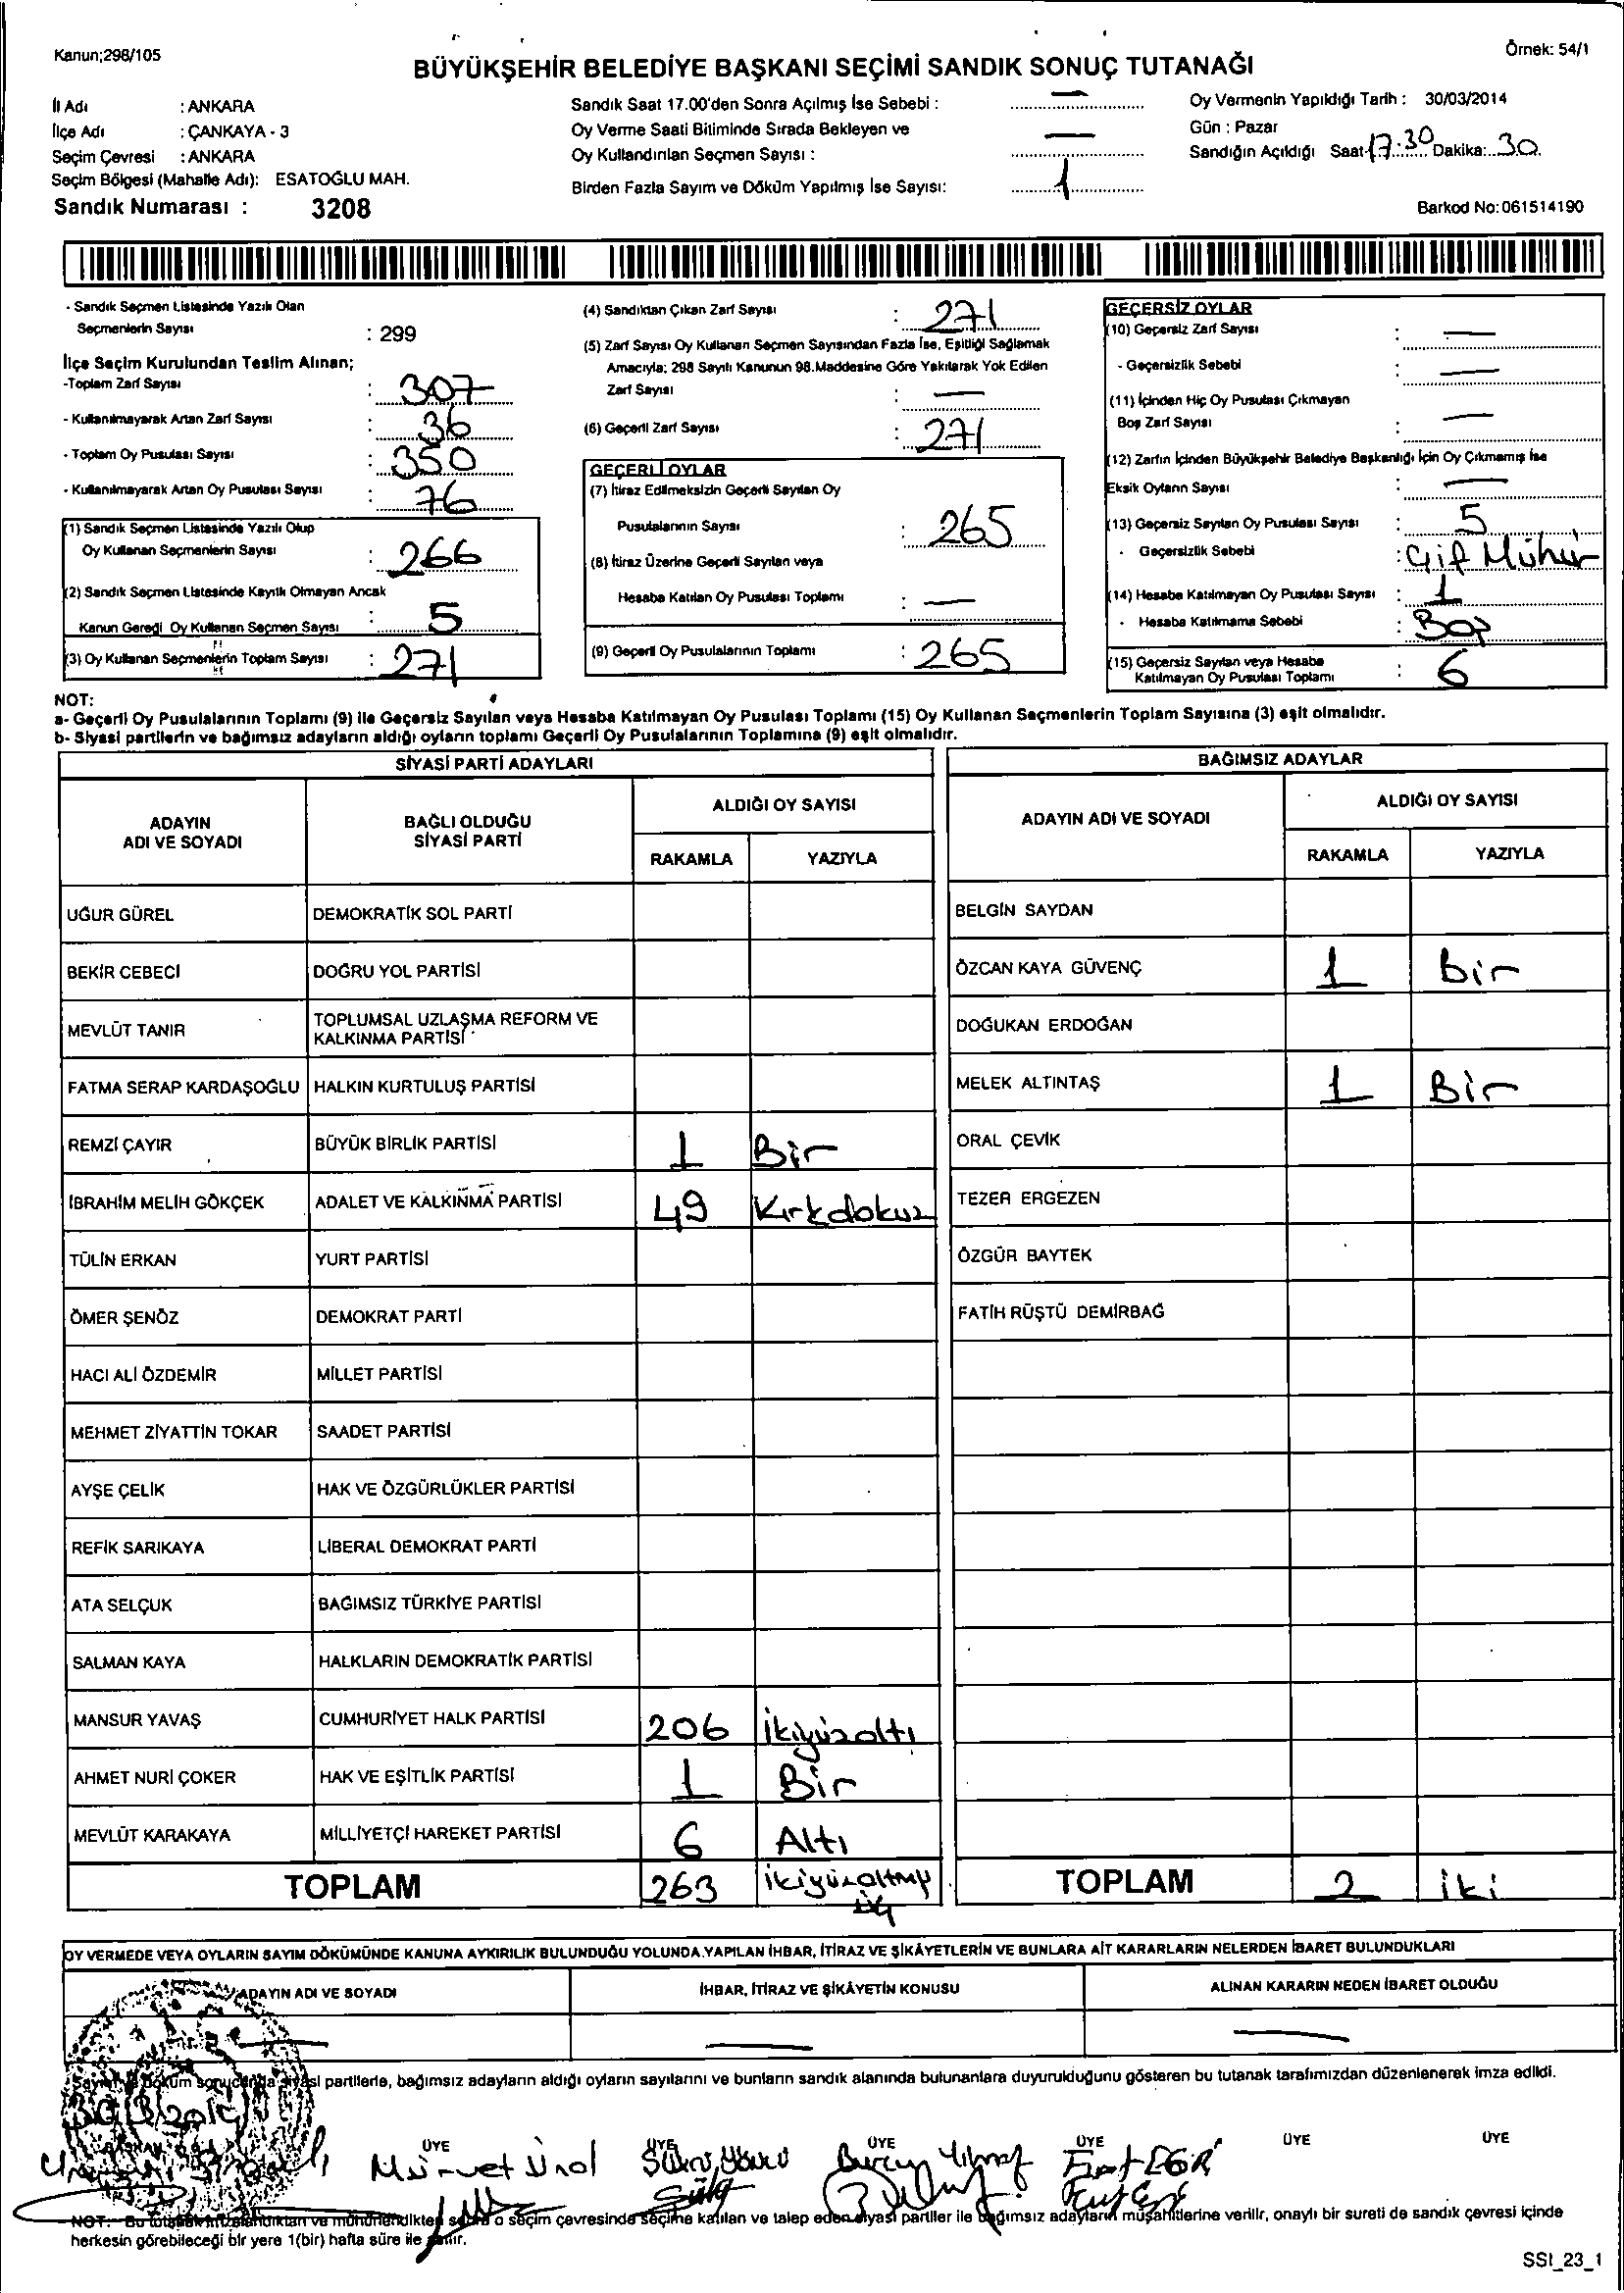 Kanun;298/105
Örnek: 54/1
BÜYÜKŞEHİR BELEDİYE BAŞKANI SEÇİMİ SANDIK SONUÇ TUTANAĞI
İl Adı : ANKARA
İlçe Adı : ÇANKAYA - 3
Seçim Çevresi : ANKARA
Seçim Bölgesi (Mahalle Adı): ESATOĞLU MAH.
Sandık Numarası : 3208
Sandık Saat 17.00'den Sonra Açılmış İse Sebebi : —
Oy Verme Saati Bitiminde Sırada Bekleyen ve
Oy Kullandırılan Seçmen Sayısı : —
Birden Fazla Sayım ve Döküm Yapılmış İse Sayısı: 1
Oy Vermenin Yapıldığı Tarih : 30/03/2014
Gün : Pazar
Sandığın Açıldığı Saat 17:30 Dakika: 30
Barkod No:061514190
- Sandık Seçmen Listesinde Yazılı Olan
Seçmenlerin Sayısı : 299
İlçe Seçim Kurulundan Teslim Alınan;
-Toplam Zarf Sayısı : 307
- Kullanılmayarak Artan Zarf Sayısı : 36
- Toplam Oy Pusulası Sayısı : 350
- Kullanılmayarak Artan Oy Pusulası Sayısı : 76
(1) Sandık Seçmen Listesinde Yazılı Olup
Oy Kullanan Seçmenlerin Sayısı : 266
(2) Sandık Seçmen Listesinde Kayıtlı Olmayan Ancak
Kanun Geredi Oy Kullanan Seçmen Sayısı : 5
(3) Oy Kullanan Seçmenlerin Toplam Sayısı : 271
(4) Sandıktan Çıkan Zarf Sayısı : 271
(5) Zarf Sayısı Oy Kullanan Seçmen Sayısından Fazla İse, Eşitliği Sağlamak
Amacıyla; 298 Sayılı Kanunun 98.Maddesine Göre Yakılarak Yok Edilen
Zarf Sayısı : —
(6) Geçerli Zarf Sayısı : 271
GEÇERLİ OYLAR
(7) İtiraz Edilmeksizin Geçerli Sayılan Oy
Pusulalarının Sayısı : 265
(8) İtiraz Üzerine Geçerli Sayılan veya
Hesaba Katılan Oy Pusulası Toplamı : —
(9) Geçerli Oy Pusulalarının Toplamı : 265
GEÇERSİZ OYLAR
(10) Geçersiz Zarf Sayısı : —
- Geçersizlik Sebebi : —
(11) İçinden Hiç Oy Pusulası Çıkmayan
Boş Zarf Sayısı : —
(12) Zarfın İçinden Büyükşehir Belediye Başkanlığı İçin Oy Çıkmamış İse
Eksik Oyların Sayısı : —
(13) Geçersiz Sayılan Oy Pusulası Sayısı : 5
- Geçersizlik Sebebi : Çift Mühür
(14) Hesaba Katılmayan Oy Pusulası Sayısı : 1
- Hesaba Katılmama Sebebi : Boş
(15) Geçersiz Sayılan veya Hesaba
Katılmayan Oy Pusulası Toplamı : 6
NOT:
a- Geçerli Oy Pusulalarının Toplamı (9) ile Geçersiz Sayılan veya Hesaba Katılmayan Oy Pusulası Toplamı (15) Oy Kullanan Seçmenlerin Toplam Sayısına (3) eşit olmalıdır.
b- Siyasi partilerin ve bağımsız adayların aldığı oyların toplamı Geçerli Oy Pusulalarının Toplamına (9) eşit olmalıdır.
SİYASİ PARTİ ADAYLARI
ADAYIN
ADI VE SOYADI
BAĞLI OLDUĞU
SİYASİ PARTİ
ALDIĞI OY SAYISI
RAKAMLA YAZIYLA
UĞUR GÜREL DEMOKRATİK SOL PARTİ
BEKİR CEBECİ DOĞRU YOL PARTİSİ
MEVLÜT TANIR TOPLUMSAL UZLAŞMA REFORM VE
KALKINMA PARTİSİ
FATMA SERAP KARDAŞOĞLU HALKIN KURTULUŞ PARTİSİ
REMZİ ÇAYIR BÜYÜK BİRLİK PARTİSİ 1 Bir
İBRAHİM MELİH GÖKÇEK ADALET VE KALKINMA PARTİSİ 49 Kırkdokuz
TÜLİN ERKAN YURT PARTİSİ
ÖMER ŞENÖZ DEMOKRAT PARTİ
HACI ALİ ÖZDEMİR MİLLET PARTİSİ
MEHMET ZİYATTİN TOKAR SAADET PARTİSİ
AYŞE ÇELİK HAK VE ÖZGÜRLÜKLER PARTİSİ
REFİK SARIKAYA LİBERAL DEMOKRAT PARTİ
ATA SELÇUK BAĞIMSIZ TÜRKİYE PARTİSİ
SALMAN KAYA HALKLARIN DEMOKRATİK PARTİSİ
MANSUR YAVAŞ CUMHURİYET HALK PARTİSİ 206 İkiyüzaltı
AHMET NURİ ÇOKER HAK VE EŞİTLİK PARTİSİ 1 Bir
MEVLÜT KARAKAYA MİLLİYETÇİ HAREKET PARTİSİ 6 Altı
TOPLAM 263 ikiyüzaltmış
üç
BAĞIMSIZ ADAYLAR
ADAYIN ADI VE SOYADI
ALDIĞI OY SAYISI
RAKAMLA YAZIYLA
BELGİN SAYDAN
ÖZCAN KAYA GÜVENÇ 1 Bir
DOĞUKAN ERDOĞAN
MELEK ALTINTAŞ 1 Bir
ORAL ÇEVİK
TEZER ERGEZEN
ÖZGÜR BAYTEK
FATİH RÜŞTÜ DEMİRBAĞ
TOPLAM 2 iki
OY VERMEDE VEYA OYLARIN SAYIM DÖKÜMÜNDE KANUNA AYKIRILIK BULUNDUĞU YOLUNDA YAPILAN İHBAR, İTİRAZ VE ŞİKÂYETLERİN VE BUNLARA AİT KARARLARIN NELERDEN İBARET BULUNDUKLARI
ADAYIN ADI VE SOYADI İHBAR, İTİRAZ VE ŞİKÂYETİN KONUSU ALINAN KARARIN NEDEN İBARET OLDUĞU
— — —
Sayım ve döküm sonucunda siyasi partilerle, bağımsız adayların aldığı oyların sayılarını ve bunların sandık alanında bulunanlara duyurulduğunu gösteren bu tutanak tarafımızdan düzenlenerek imza edildi.
BAŞKAN ÜYE ÜYE ÜYE ÜYE ÜYE ÜYE
Mürvet Ünal Burcu Yılmaz
NOT: Bu tutanak imzalandıktan ve mühürlendikten sonra o seçim çevresinde seçime katılan ve talep eden siyasi partiler ile bağımsız adayların müşahitlerine verilir, onaylı bir sureti de sandık çevresi içinde
herkesin görebileceği bir yere 1(bir) hafta süre ile asılır.
SSI_23_1